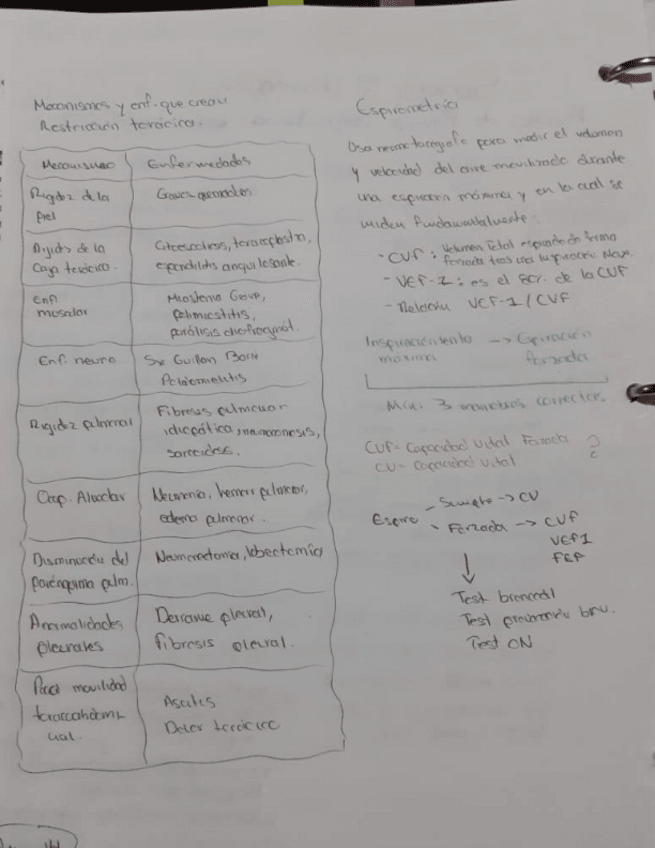 Mecanismos y enf. que crean
Restricción torácica.
Mecanismo
Enfermedades
Rigidez de la
piel
Graves quemados
Rigidez de la
Caja torácica.
toracoplastia,
espondilitis anquilosante.
Enf.
muscular
Miastenia Grave,
polimiositis,
parálisis diafragmát.
Enf. neuro
Sx Guillan Barré
Poliomielitis
Rigidez pulmonar
Fibrosis pulmonar
idiopática, neumoconiosis,
sarcoidosis.
Ocup. Alveolar
Neumonía, hemorr pulmonar,
edema pulmonar.
Disminución del
parénquima pulm.
Neumonectomía, lobectomía
Anormalidades
pleurales
Derrame pleural,
fibrosis pleural.
Poca movilidad
toracoabdomi-
nal.
Ascitis
Dolor torácico
Espirometría
Usa neumotacógrafo para medir el volumen
y velocidad del aire movilizado durante
una espiración máxima y en la cual se
miden fundamentalmente:
- CVF: Volumen Total espirado en forma
forzada tras una inspiración Máx.
- VEF-1: es el 1er. de la CVF
- Relación VEF-1/CVF
máxima
→ Espiración
forzada
Mín. 3 maniobras correctas.
CVF= Capacidad Vital Forzada ?
CV= Capacidad Vital
Espiro
- Simple → CV
- Forzada → CVF
VEF1
FEF
↓
Test broncodil
Test provocación
Test ON